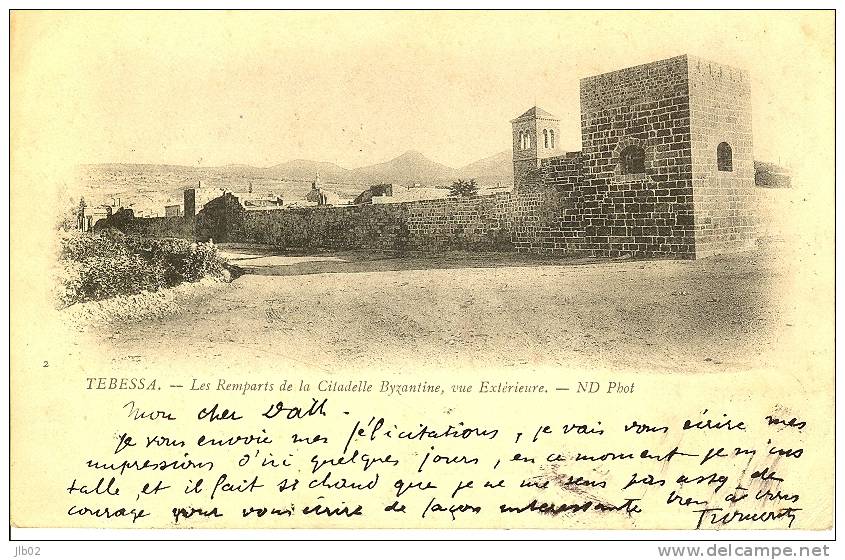 2
TEBESSA. — Les Remparts de la Citadelle Byzantine, vue Extérieure. — ND Phot
Mon cher Dath.
je vous envoie mes félicitations, je vais vous écrire mes
impressions d'ici quelques jours, en ce moment je m'ins
talle, et il fait si chaud que je ne me sens pas assez de
courage pour vous écrire de façon intéressante bien à vous
jlb02
www.delcampe.net